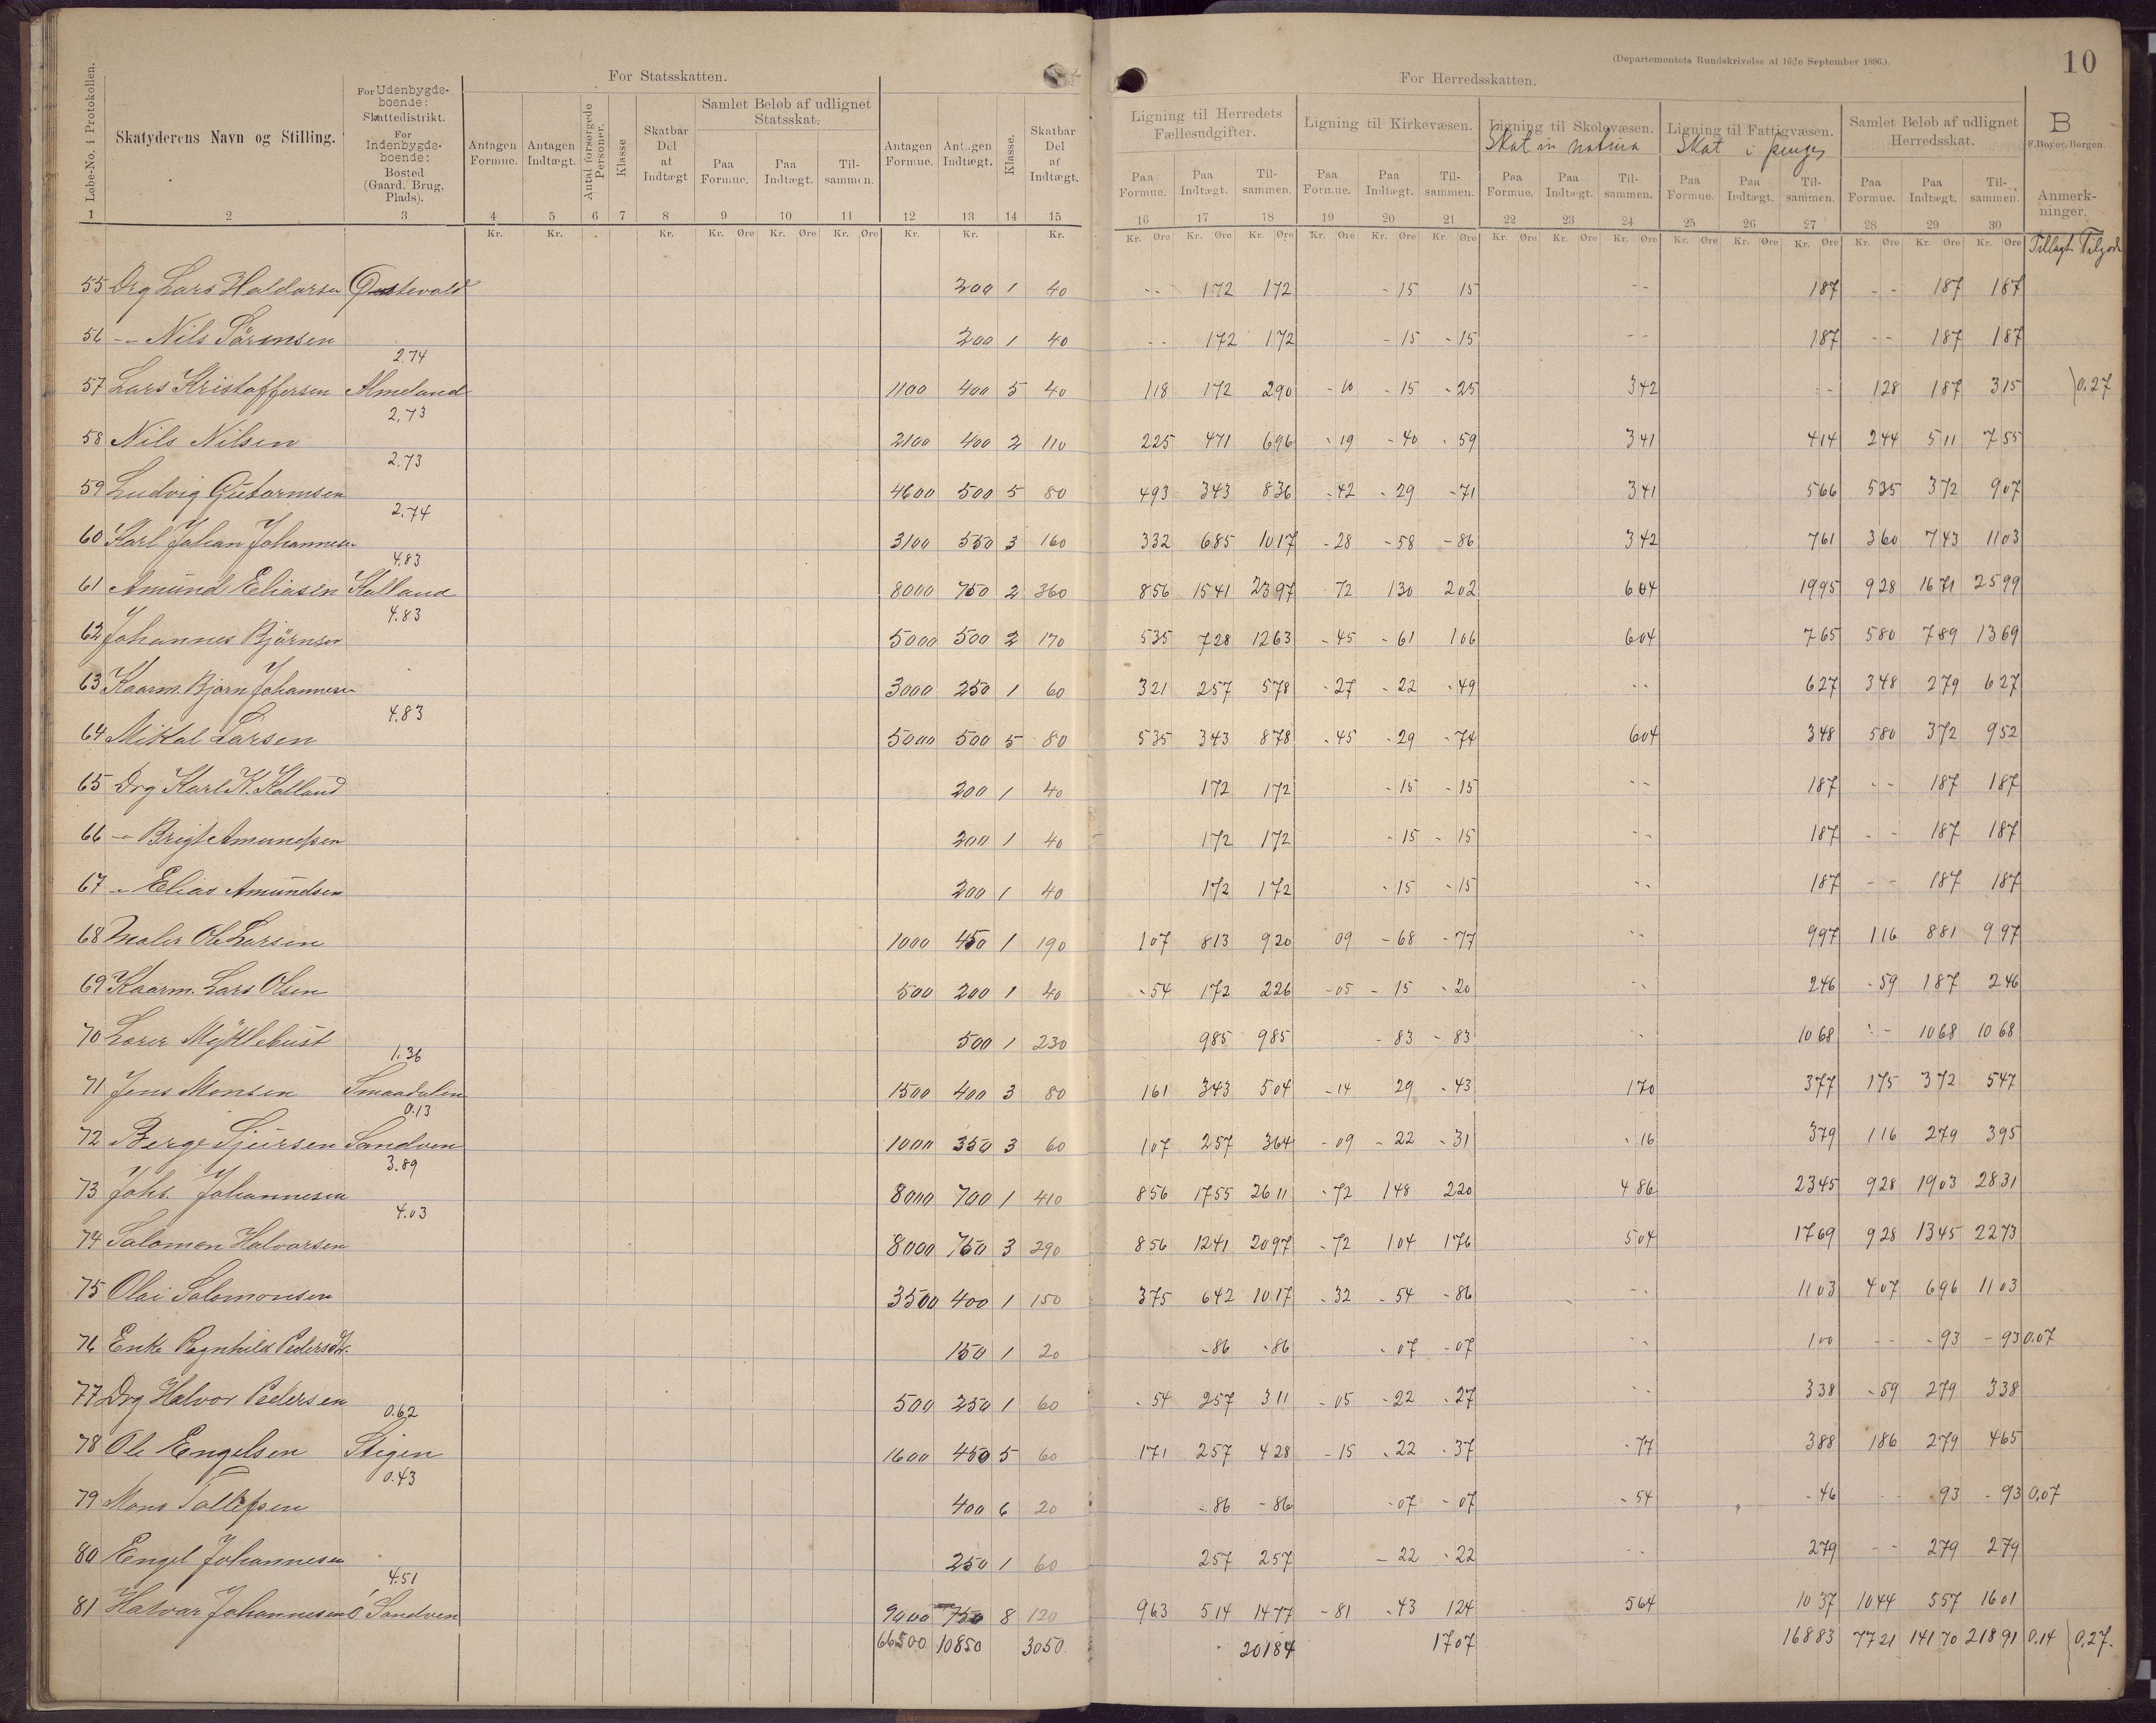 10
(Departementets Rundskrivelse af 16de September 1896).
For Statsskatten.
For Herredsskatten.
B
F. Beyer, Bergen.
Løbe-No. i Protokollen.
Skatyderens Navn og Stilling.
For Udenbygds-boende: Skattedistrikt. For Indenbygds-boende: Bosted (Gaard, Brug, Plads).
Antagen Formue. Antagen Indtægt. Antal forsørgede Personer. Klasse Skatbar Del at Indtægt
Samlet Beløb af udlignet Statsskat.
Paa Formue. Paa Indtægt. Til-sammen.
Antagen Formue. Antagen Indtægt. Klasse. Skatbar Del af Indtægt.
Ligning til Herredets Fællesudgifter. Ligning til Kirkevæsen. Ligning til Skolevæsen. Ligning til Fattigvæsen. Samlet Beløb af udlignet Herredsskat.
Skat in natura Skat i penge
Paa Formue. Paa Indtægt. Til-sammen. Paa Formue. Paa Indtægt. Til-sammen. Paa Formue. Paa Indtægt. Til-sammen. Paa Formue. Paa Indtægt. Til-sammen. Paa Formue. Paa Indtægt. Til-sammen. Anmerk-ninger.
1 2 3 4 5 6 7 8 9 10 11 12 13 14 15 16 17 18 19 20 21 22 23 24 25 26 27 28 29 30
Kr. Kr. Kr. Kr. Øre Kr. Øre Kr. Øre Kr. Kr. Kr. Kr. Øre Kr. Øre Kr. Øre Kr. Øre Kr. Øre Kr. Øre Kr. Øre Kr. Øre Kr. Øre Kr. Øre Kr. Øre Kr. Øre Kr. Øre Kr. Øre Kr. Øre Tillagt Tilgode
55 Drg Lars Haldorsen 200 1 40 -- 172 172 - 15 15 -- 187 -- 187 187
56 -"- Nils Sørensen 200 1 40 -- 172 172 - 15 - 15 -- 187 -- 187 187
2.74
57 Lars Kristoffersen Almeland 1100 400 5 40 118 172 290 - 10 - 15 - 25 342 -- 128 187 315 } 0.27
2.73
58 Nils Nilsen 2100 400 2 110 225 471 696 - 19 - 40 - 59 341 414 244 511 755
2.73
59 Ludvig Gutormsen 4600 500 5 80 493 343 836 - 42 - 29 - 71 341 566 535 372 907
2.74
60 Karl Johan Johannesen 3100 550 3 160 332 685 1017 - 28 - 58 - 86 342 761 360 743 1103
4.83
61 Amund Eliasen Kalland 8000 750 2 360 856 1541 2397 72 130 202 604 1995 928 1671 2599
4.83
62 Johannes Bjørnsen 5000 500 2 170 535 728 1263 - 45 - 61 106 604 765 580 789 1369
63 Kaarm. Bjørn Johannesen 3000 250 1 60 321 257 578 - 27 - 22 - 49 -- 627 348 279 627
4.83
64 Mikal Larsen 5000 500 5 80 535 343 878 - 45 - 29 - 74 604 348 580 372 952
65 Drg Karl K. Kalland 200 1 40 172 172 - 15 - 15 -- 187 -- 187 187
66 -"- Brigt Amundsen 200 1 40 172 172 - 15 - 15 -- 187 -- 187 187
67 -"- Elias Amundsen 200 1 40 172 172 - 15 - 15 -- 187 -- 187 187
68 Maler Ole Larsen 1000 450 1 190 107 813 920 09 - 68 - 77 -- 997 116 881 997
69 Kaarm. Lars Olsen 500 200 1 40 - 54 172 226 - 05 - 15 - 20 -- 246 - 59 187 246
70 Lærer Myklebust 500 1 230 985 985 - 83 - 83 -- 1068 -- 1068 1068
1.36
71 Jens Monsen Smaadalen 1500 400 3 80 161 343 504 - 14 29 - 43 170 377 175 372 547
0.13
72 Berge Sjursen Sandven 1000 350 3 60 107 257 364 - 09 - 22 - 31 - 16 379 116 279 395
3.89
73 Johs. Johannesen 8000 700 1 410 856 1755 2611 - 72 148 220 486 2345 928 1903 2831
4.03
74 Salomon Halvorsen 8000 750 3 290 856 1241 2097 - 72 104 176 504 1769 928 1345 2273
75 Olai Salomonsen 3500 400 1 150 375 642 1017 - 32 - 54 - 86 -- 1103 407 696 1103
76 Enke Ragnhild Pedersdtr. 150 1 20 - 86 - 86 - 07 - 07 -- 100 -- - 93 - 93 0.07
77 Drg Halvor Pedersen 500 250 1 60 - 54 257 311 - 05 - 22 - 27 -- 338 - 59 279 338
0.62
78 Ole Engelsen Stigen 1600 450 5 60 171 257 428 - 15 - 22 - 37 - 77 388 186 279 465
0.43
79 Mons Tollefsen 400 6 20 - 86 - 86 - 07 - 07 - 54 - 46 -- - 93 - 93 0,07
80 Engel Johannesen 250 1 60 257 257 - 22 - 22 -- 279 -- 279 279
4.51
81 Halvar Johannesen Ó Sandven 9000 750 8 120 963 514 1477 - 81 - 43 124 564 1037 1044 557 1601
66500 10850 3050 20184 1707 16883 7721 14170 21891 0.14 } 0,27.